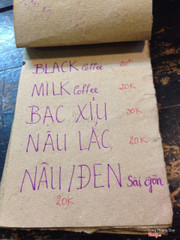 BLACK Coffee
MILK Coffee 20K
BẠC XỈU 20K
NÂU LẮC 20K
NÂU/ĐEN Sài gòn
20K